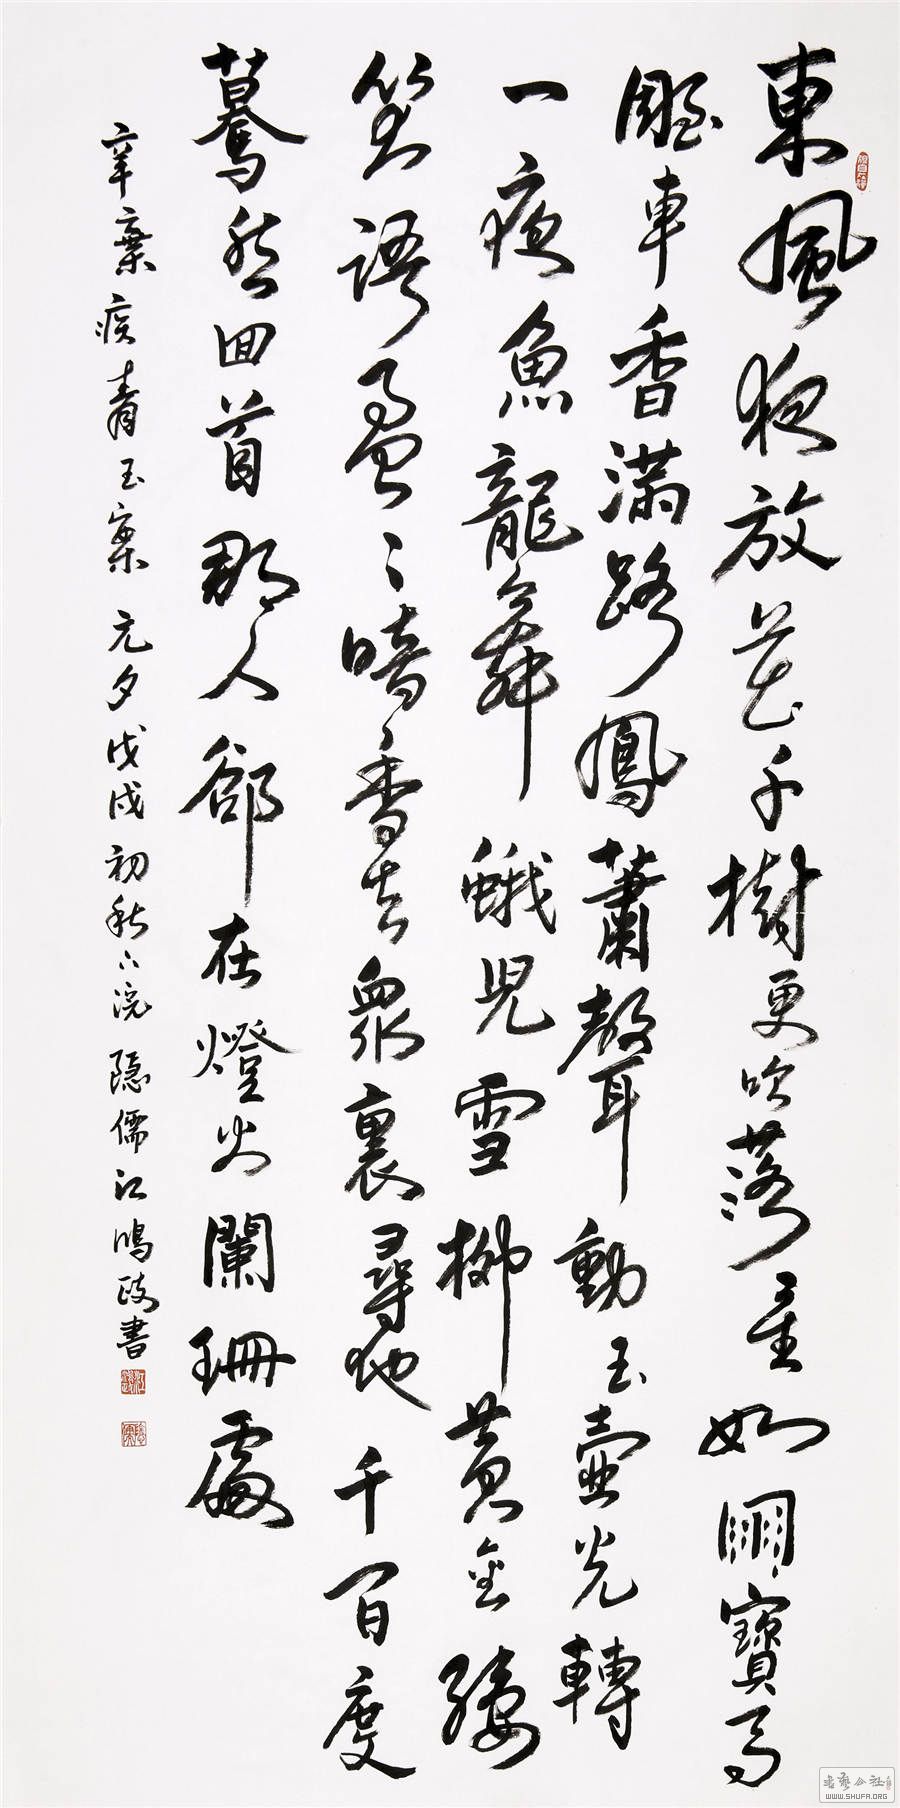 東風夜放花千樹更吹落星如雨寶馬
雕車香滿路鳳蕭聲動玉壺光轉
一夜魚龍舞蛾兒雪柳黃金縷
笑語盈〻暗香去眾裏尋他千百度
驀然回首那人卻在燈火闌珊處
辛棄疾青玉案元夕戊戌初秋下浣隱儒江鴻政書
書藝公社
WWW.SHUFA.ORG